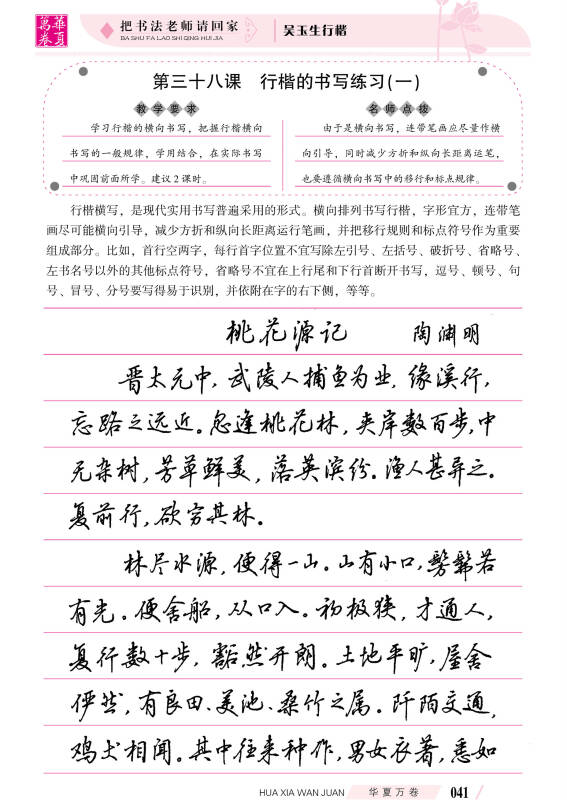 華夏萬卷
把书法老师请回家
BA SHU FA LAO SHI QING HUI JIA
吴玉生行楷
第三十八课　行楷的书写练习(一)
教学要求
学习行楷的横向书写，把握行楷横向
书写的一般规律，学用结合，在实际书写
中巩固前面所学。建议2课时。
名师点拨
由于是横向书写，连带笔画应尽量作横
向引导，同时减少方折和纵向长距离运笔，
也要遵循横向书写中的移行和标点规律。
行楷横写，是现代实用书写普遍采用的形式。横向排列书写行楷，字形宜方，连带笔
画尽可能横向引导，减少方折和纵向长距离运行笔画，并把移行规则和标点符号作为重要
组成部分。比如，首行空两字，每行首字位置不宜写除左引号、左括号、破折号、省略号、
左书名号以外的其他标点符号，省略号不宜在上行尾和下行首断开书写，逗号、顿号、句
号、冒号、分号要写得易于识别，并依附在字的右下侧，等等。
桃花源记　陶渊明
晋太元中，武陵人捕鱼为业，缘溪行，
忘路之远近。忽逢桃花林，夹岸数百步，中
无杂树，芳草鲜美，落英滨纷。渔人甚异之。
复前行，欲穷其林。
林尽水源，便得一山。山有小口，髣髴若
有光。便舍船，从口入。初极狭，才通人，
复行数十步，豁然开朗。土地平旷，屋舍
俨然，有良田、美池、桑竹之属。阡陌交通，
鸡犬相闻。其中往来种作，男女衣著，悉如
HUA XIA WAN JUAN
华夏万卷
041